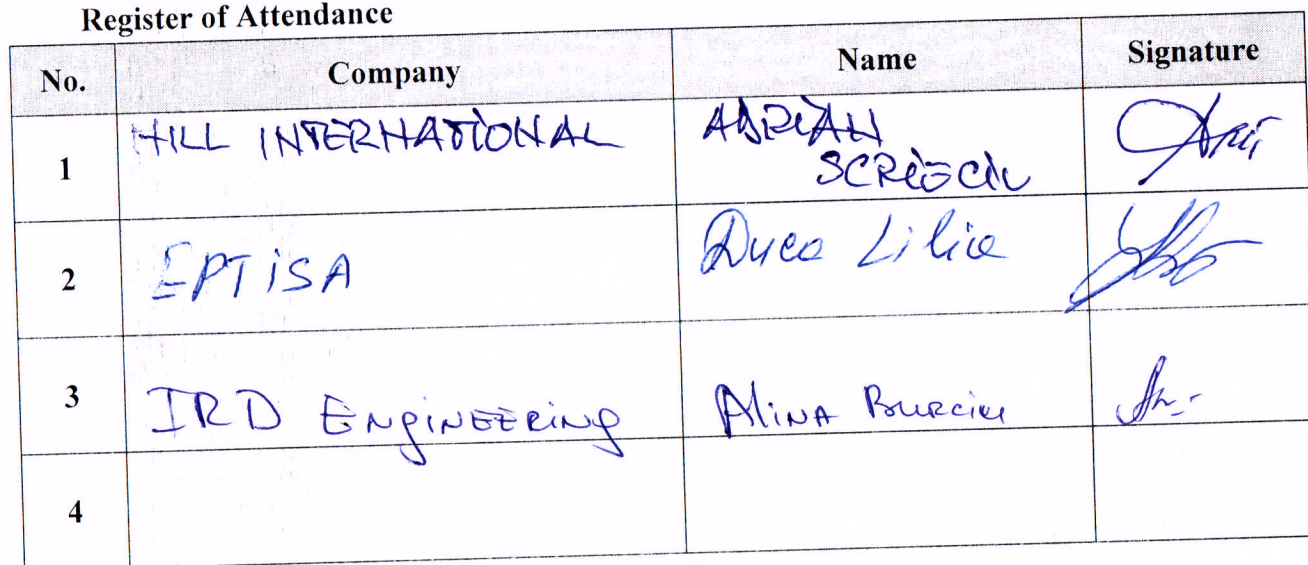 Register of Attendance
No. Company Name Signature
1 HILL INTERNATIONAL ADRIAN
2 EPTISA Duca Lilia
3 IRD ENGINEERING Alina Burciu
4